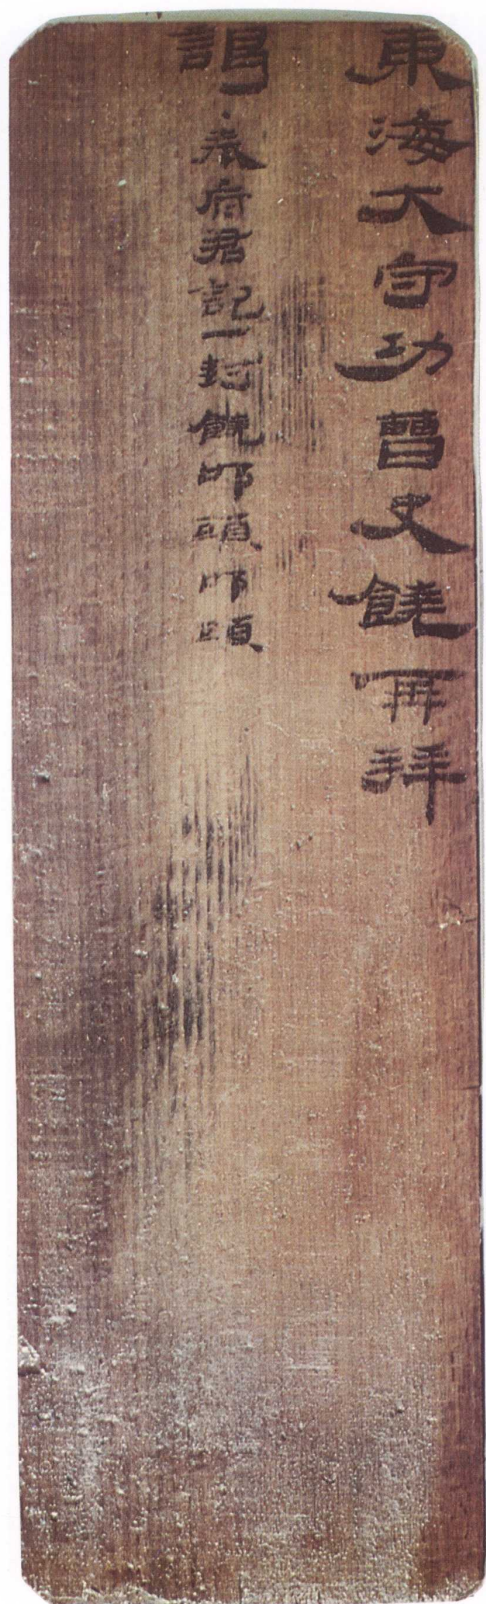 東海大守功曹史饒再拜
謁·奉府君記一封饒叩頭叩頭